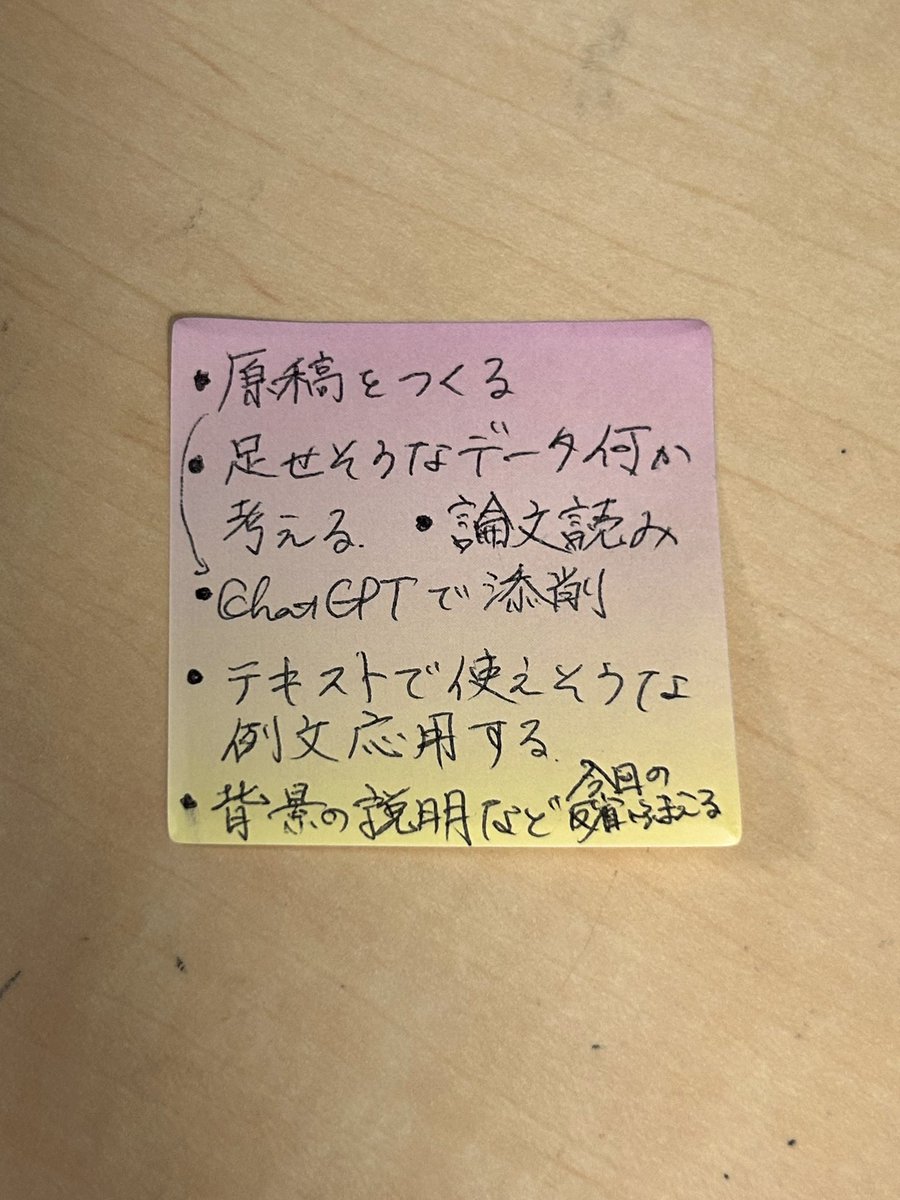 • 原稿をつくる
• 足せそうなデータ何か
考える. • 論文読み
• ChatGPTで添削
• テキストで使えそうな
例文応用する.
• 背景の説明など 今日の
反省ふまえる